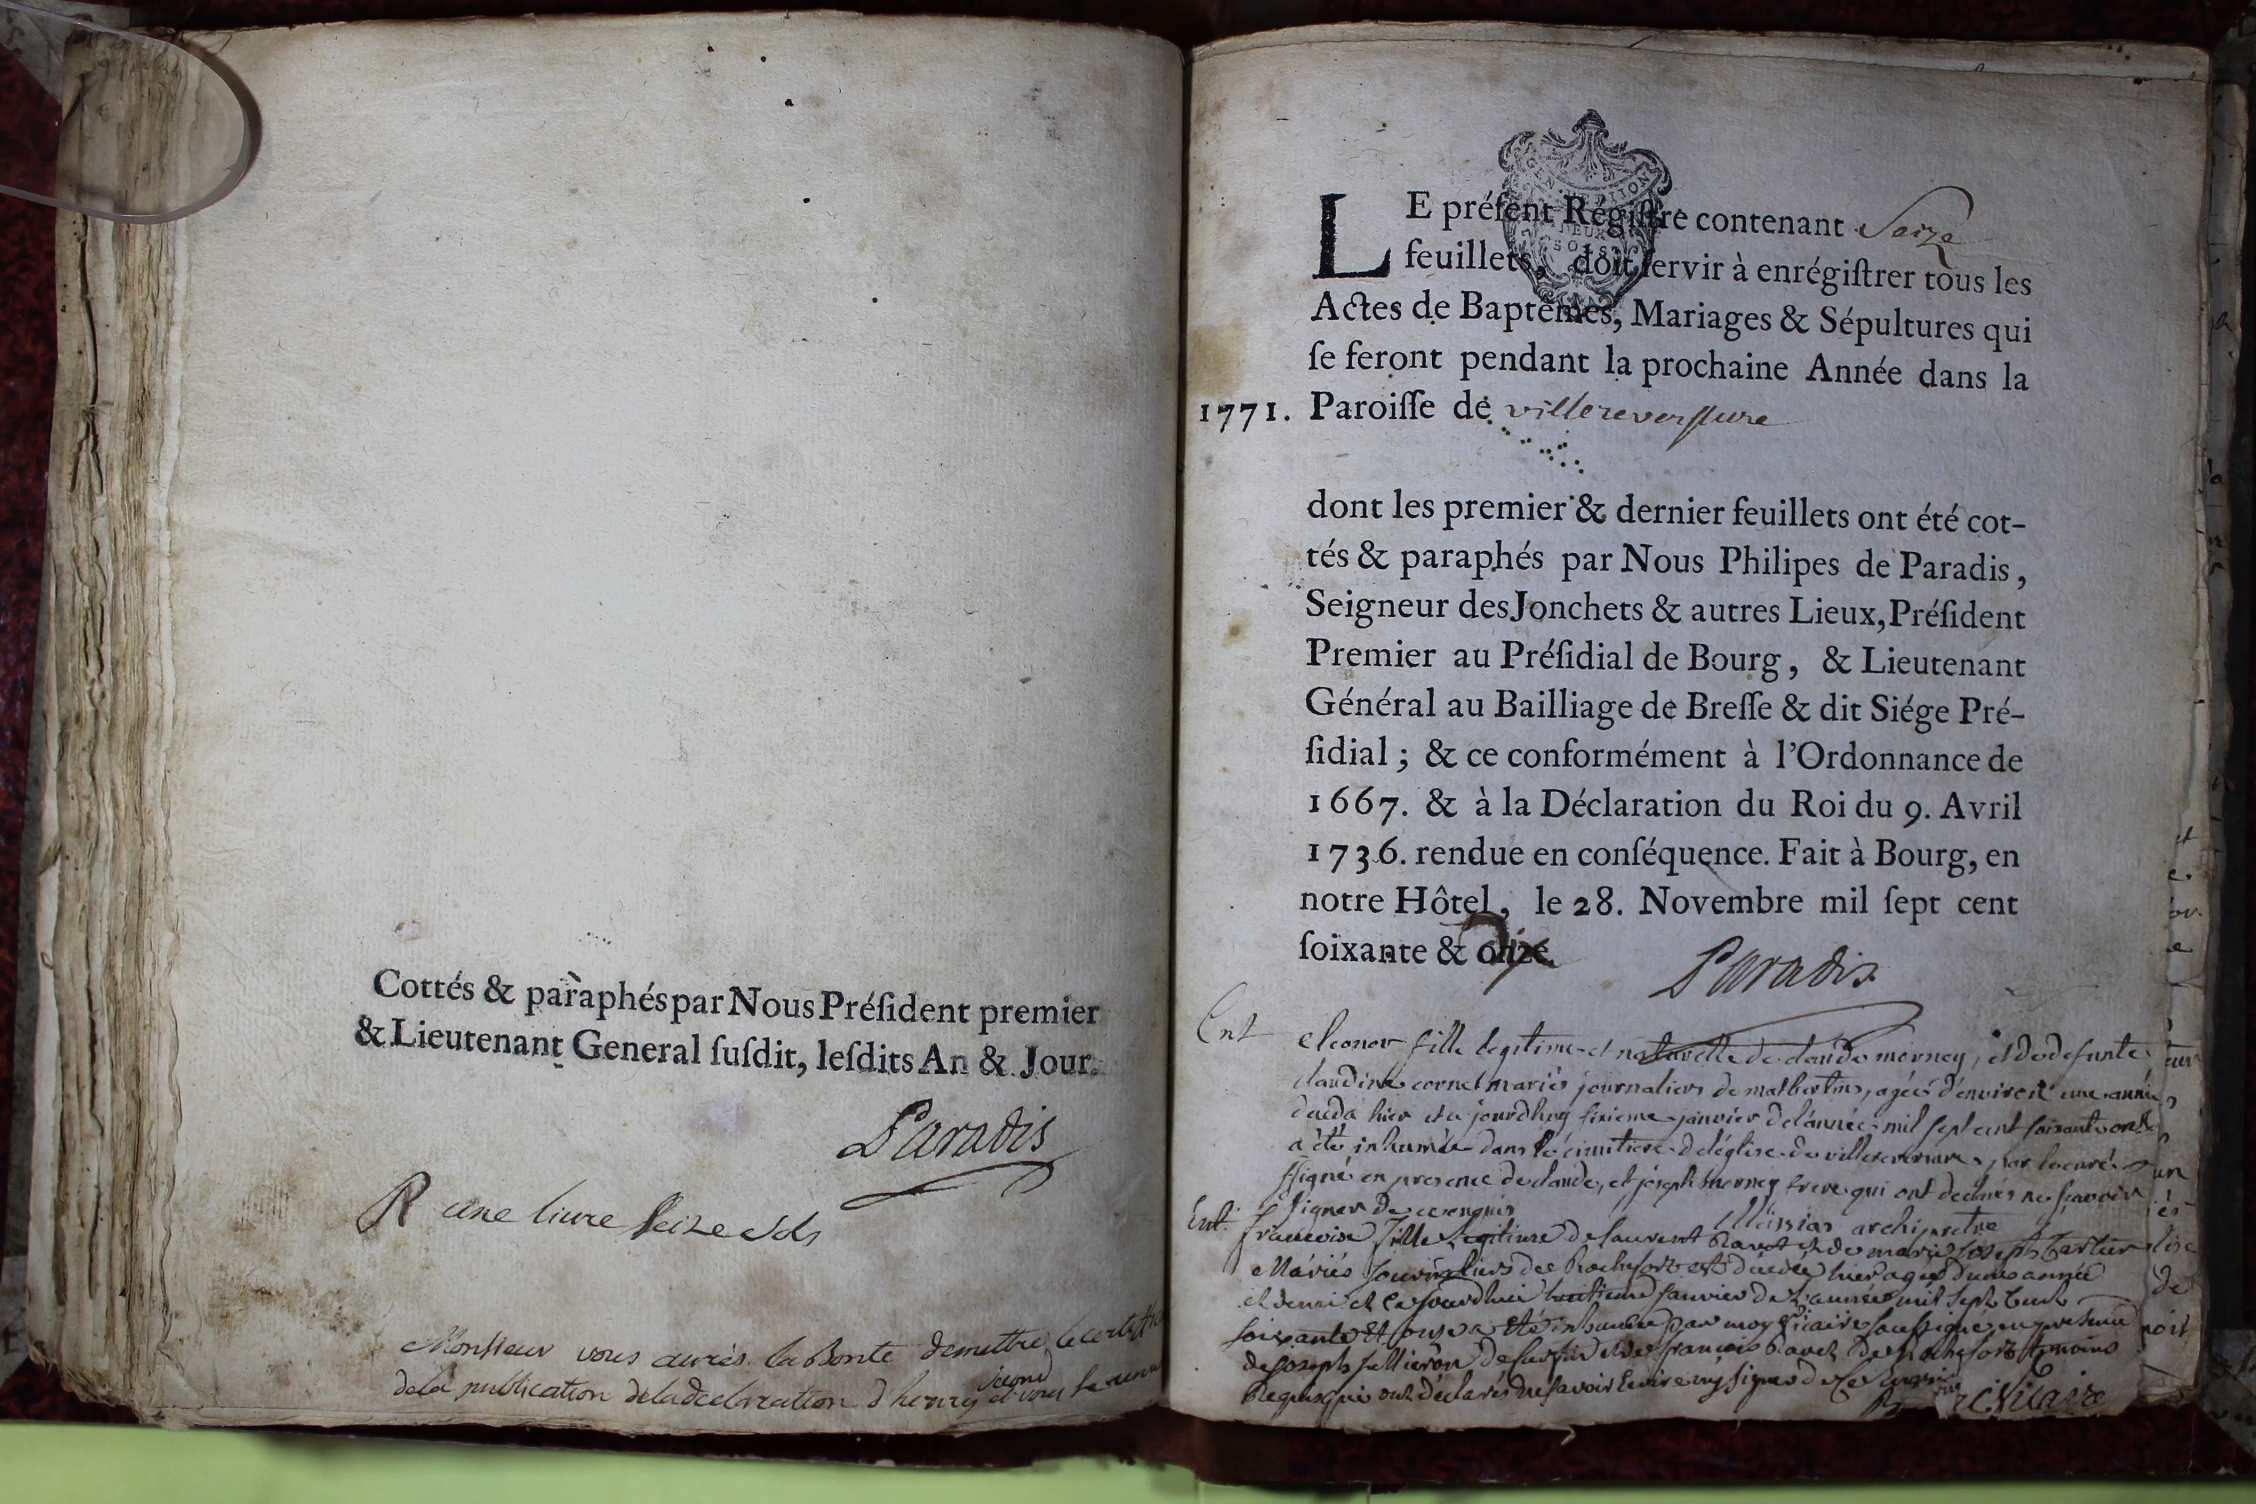 Cottés & paraphés par Nous Préſident premier
& Lieutenant General ſuſdit, leſdits An & Jour.
Paradis
R une livre Seize Sols
Monsieur vous aurés la Bonte demettre le
dela publication deladeclaration d'henry second et vous
LE préſent Régiſtre contenant Seize
feuillets, doit ſervir à enrégiſtrer tous les
Actes de Baptêmes, Mariages & Sépultures qui
ſe feront pendant la prochaine Année dans la
1771. Paroiſſe de villereversure
dont les premier & dernier feuillets ont été cot-
tés & paraphés par Nous Philipes de Paradis,
Seigneur des Jonchets & autres Lieux, Préſident
Premier au Préſidial de Bourg, & Lieutenant
Général au Bailliage de Breſſe & dit Siége Pré-
ſidial ; & ce conformément à l'Ordonnance de
1667. & à la Déclaration du Roi du 9. Avril
1736. rendue en conſéquence. Fait à Bourg, en
notre Hôtel, le 28. Novembre mil ſept cent
ſoixante & onze. Dix
Paradis
Ent eleonor fille legitime et naturelle de claude morney, et de defunte
claudine cornet mariés journaliers de , agée d'environ une année
décéda hier et a jourdhuy sixieme janvier de l'année mil sept cent soixante onze
a été inhumée dans le cimitiere de l'église de villereversure par le curé
ssigné en presence de claude, et joseph morney frere qui ont declarés ne scavoir
signer de ce enquis archipretre
Ent. francoise fille Legitime de laurent Ravet et de marie joseph
Mariés de Rochefort est décédée hier agée d'une année
et demi et ce jourdhui huitieme janvier de L'année mil sept Cent
soixante et onze a été inhumée par moy vicaire soussigné en presence
de joseph de et de francois Ravet de Rochefort temoins
Requis qui ont déclarés ne savoir Ecrire ny signer de ce
vicaire